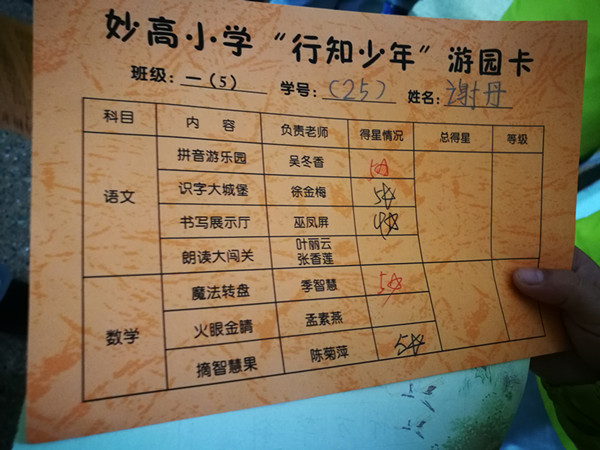 妙高小学“行知少年”游园卡
班级：一（5） 学号：（25） 姓名：谢丹
科目 内容 负责老师 得星情况 总得星 等级
语文
拼音游乐园 吴冬香
识字大城堡 徐金梅 5☆
书写展示厅 巫凤屏 4☆
朗读大闯关 叶丽云 张香莲
数学
魔法转盘 季智慧 5☆
火眼金睛 孟素燕
摘智慧果 陈菊萍 5☆